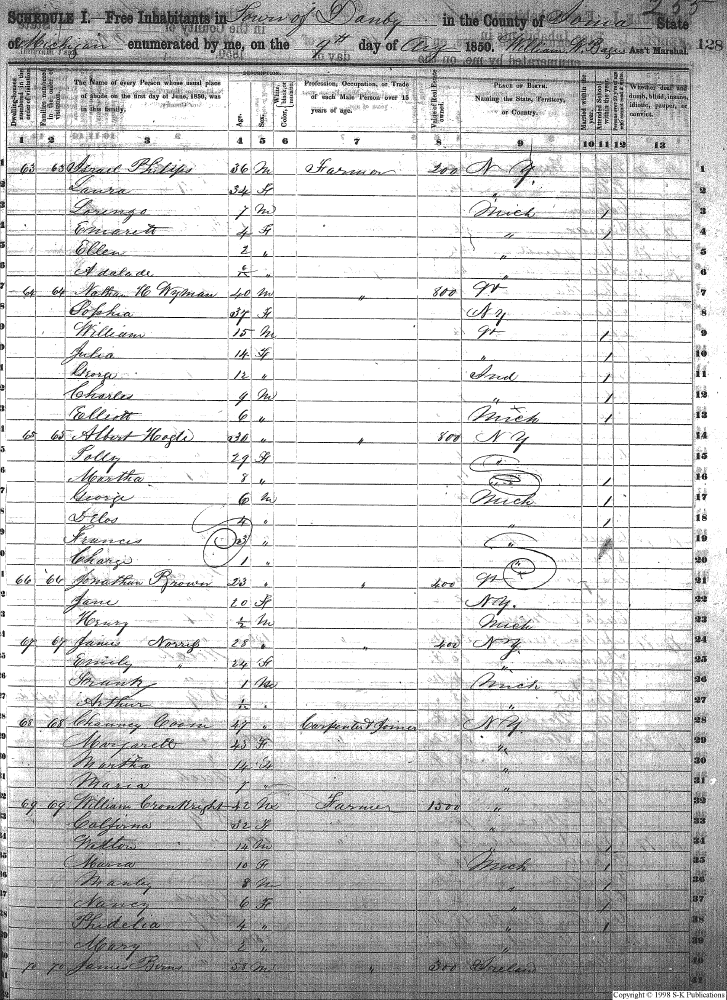 255
SCHEDULE I. Free Inhabitants in Town of Danby in the County of Ionia State
of Michigan enumerated by me, on the 9th day of Aug 1850. William W. Ass't Marshal 128
DESCRIPTION.
Dwelling-houses numbered in the order of visitation. Families numbered in the order of visitation. The Name of every Person whose usual place of abode on the first day of June, 1850, was in this family. Age. Sex. White, black, or mulatto. Color, Profession, Occupation, or Trade of each Male Person over 15 years of age. Value of Real Estate owned. PLACE OF BIRTH. Naming the State, Territory, or Country. Married within the year. Attended School within the year. Whether deaf and dumb, blind, insane, idiotic, pauper, or convict.
1 2 3 4 5 6 7 8 9 10 11 12 13
1 63 63 Israel Philips 36 M Farmer 200 N Y 1
2 Laura 34 F " 2
3 Lorenzo 7 M Mich 1 3
4 Emarett 4 F " 1 4
5 Ellen 2 " " 5
6 Adalade " " 6
7 64 64 Nathan H Wyman 40 M " 800 Vt 7
8 Sophia 37 F N Y 8
9 William 15 M Vt 1 9
10 Julia 14 F " 1 10
11 Georg 12 " Ind 1 11
12 Charles 9 M " 1 12
13 Elliott 6 " Mich 1 13
14 65 65 Albert Hogle 30 " " 800 N Y 14
15 Polly 29 F " 15
16 Martha 8 " " 1 16
17 George 6 M Mich 1 17
18 Delos 4 " " 1 18
19 Francis 3 " " 19
20 1 " " 20
21 66 66 Jonathan Brown 23 " " 400 Vt 21
22 Jane 20 F N Y. 22
23 Henry M Mich 23
24 67 67 James Norris 28 " " 400 N Y. 24
25 Emily " 24 F " 25
26 Frank 1 M Mich 26
27 Arthur " " 27
28 68 68 Chauncy 47 " Carpenter & Joiner N Y. 28
29 Margarett 43 F " 29
30 Martha 14 F " 30
31 Maria 1 " " 31
32 69 69 William Cronkright 42 M Farmer 1500 " 32
33 32 F "
34 14 M " 1
35 Maria 10 F Mich 1 35
36 Manley 8 M " 1 36
37 Nancy 6 F " 1 37
Phidelia 4 " " 1
Mary 2 " "
70 70 James 58 M " 300 Ireland
Copyright © 1998 S-K Publications